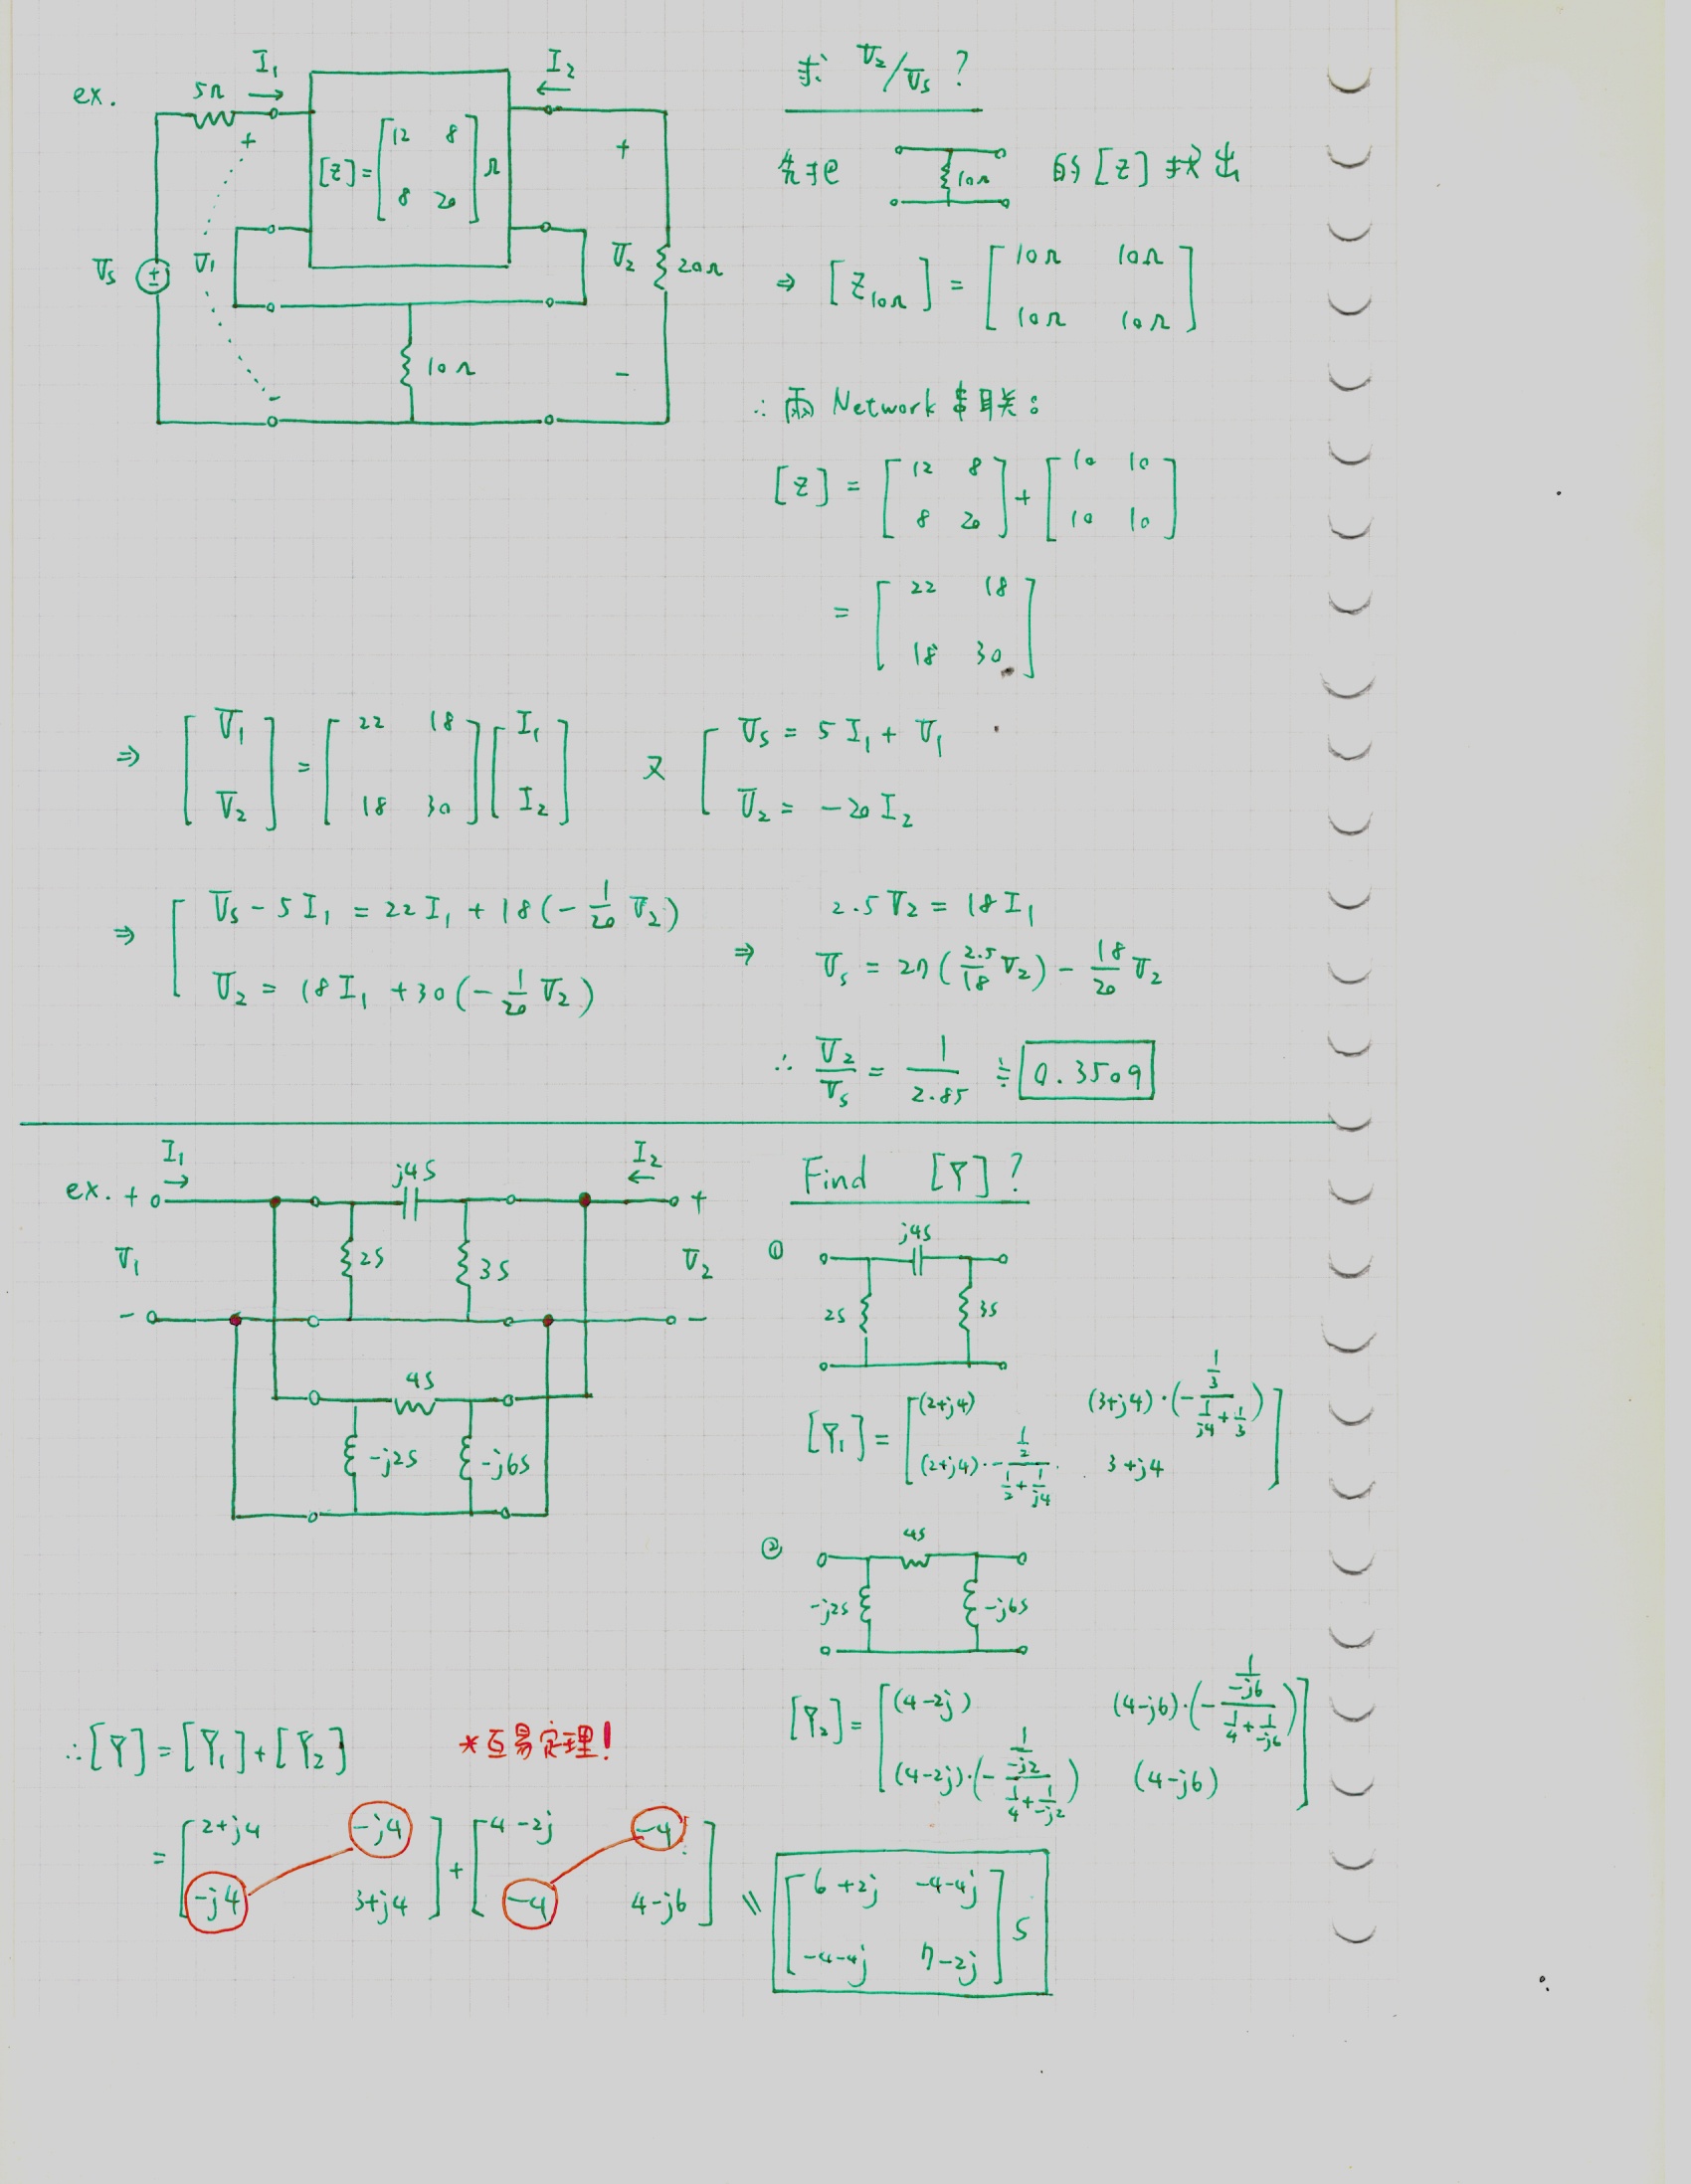 ex.
5Ω
I₁ →
I₂ ←
[z]= [12 8; 8 20] Ω
+
+
Vs
V₁
V₂
20Ω
10Ω
-
-
求 V₂/Vs ?
先把 10Ω 的 [z] 找出
⇒ [Z10Ω] = [10Ω 10Ω; 10Ω 10Ω]
∴ 兩 Network 串联:
[z] = [12 8; 8 20] + [10 10; 10 10]
= [22 18; 18 30]
⇒ [V₁; V₂] = [22 18; 18 30] [I₁; I₂] 又 [Vs = 5I₁ + V₁
V₂ = -20I₂
⇒ [Vs - 5I₁ = 22I₁ + 18(-1/20 V₂)
V₂ = 18I₁ + 30(-1/20 V₂)
⇒ 2.5V₂ = 18I₁
Vs = 27(2.5/18 V₂) - 18/20 V₂
∴ V₂/Vs = 1/2.85 ≒ 0.3509
ex.
I₁ →
I₂ ←
+
j4S
+
V₁
2S
3S
V₂
-
-
4S
-j2S
-j6S
Find [Y] ?
①
j4S
2S
3S
[Y₁] = [(2+j4) (3+j4)·(-(1/3)/(1/j4+1/3)); (2+j4)·-(1/2)/(1/2+1/j4) 3+j4]
②
4S
-j2S
-j6S
[Y₂] = [(4-2j) (4-j6)·(-(1/-j6)/(1/4+1/-j6)); (4-2j)·(-(1/-j2)/(1/4+1/-j2)) (4-j6)]
∴ [Y] = [Y₁] + [Y₂]
*互易定理!
= [2+j4 -j4; -j4 3+j4] + [4-2j -4; -4 4-j6]
= [6+2j -4-4j; -4-4j 7-2j] S